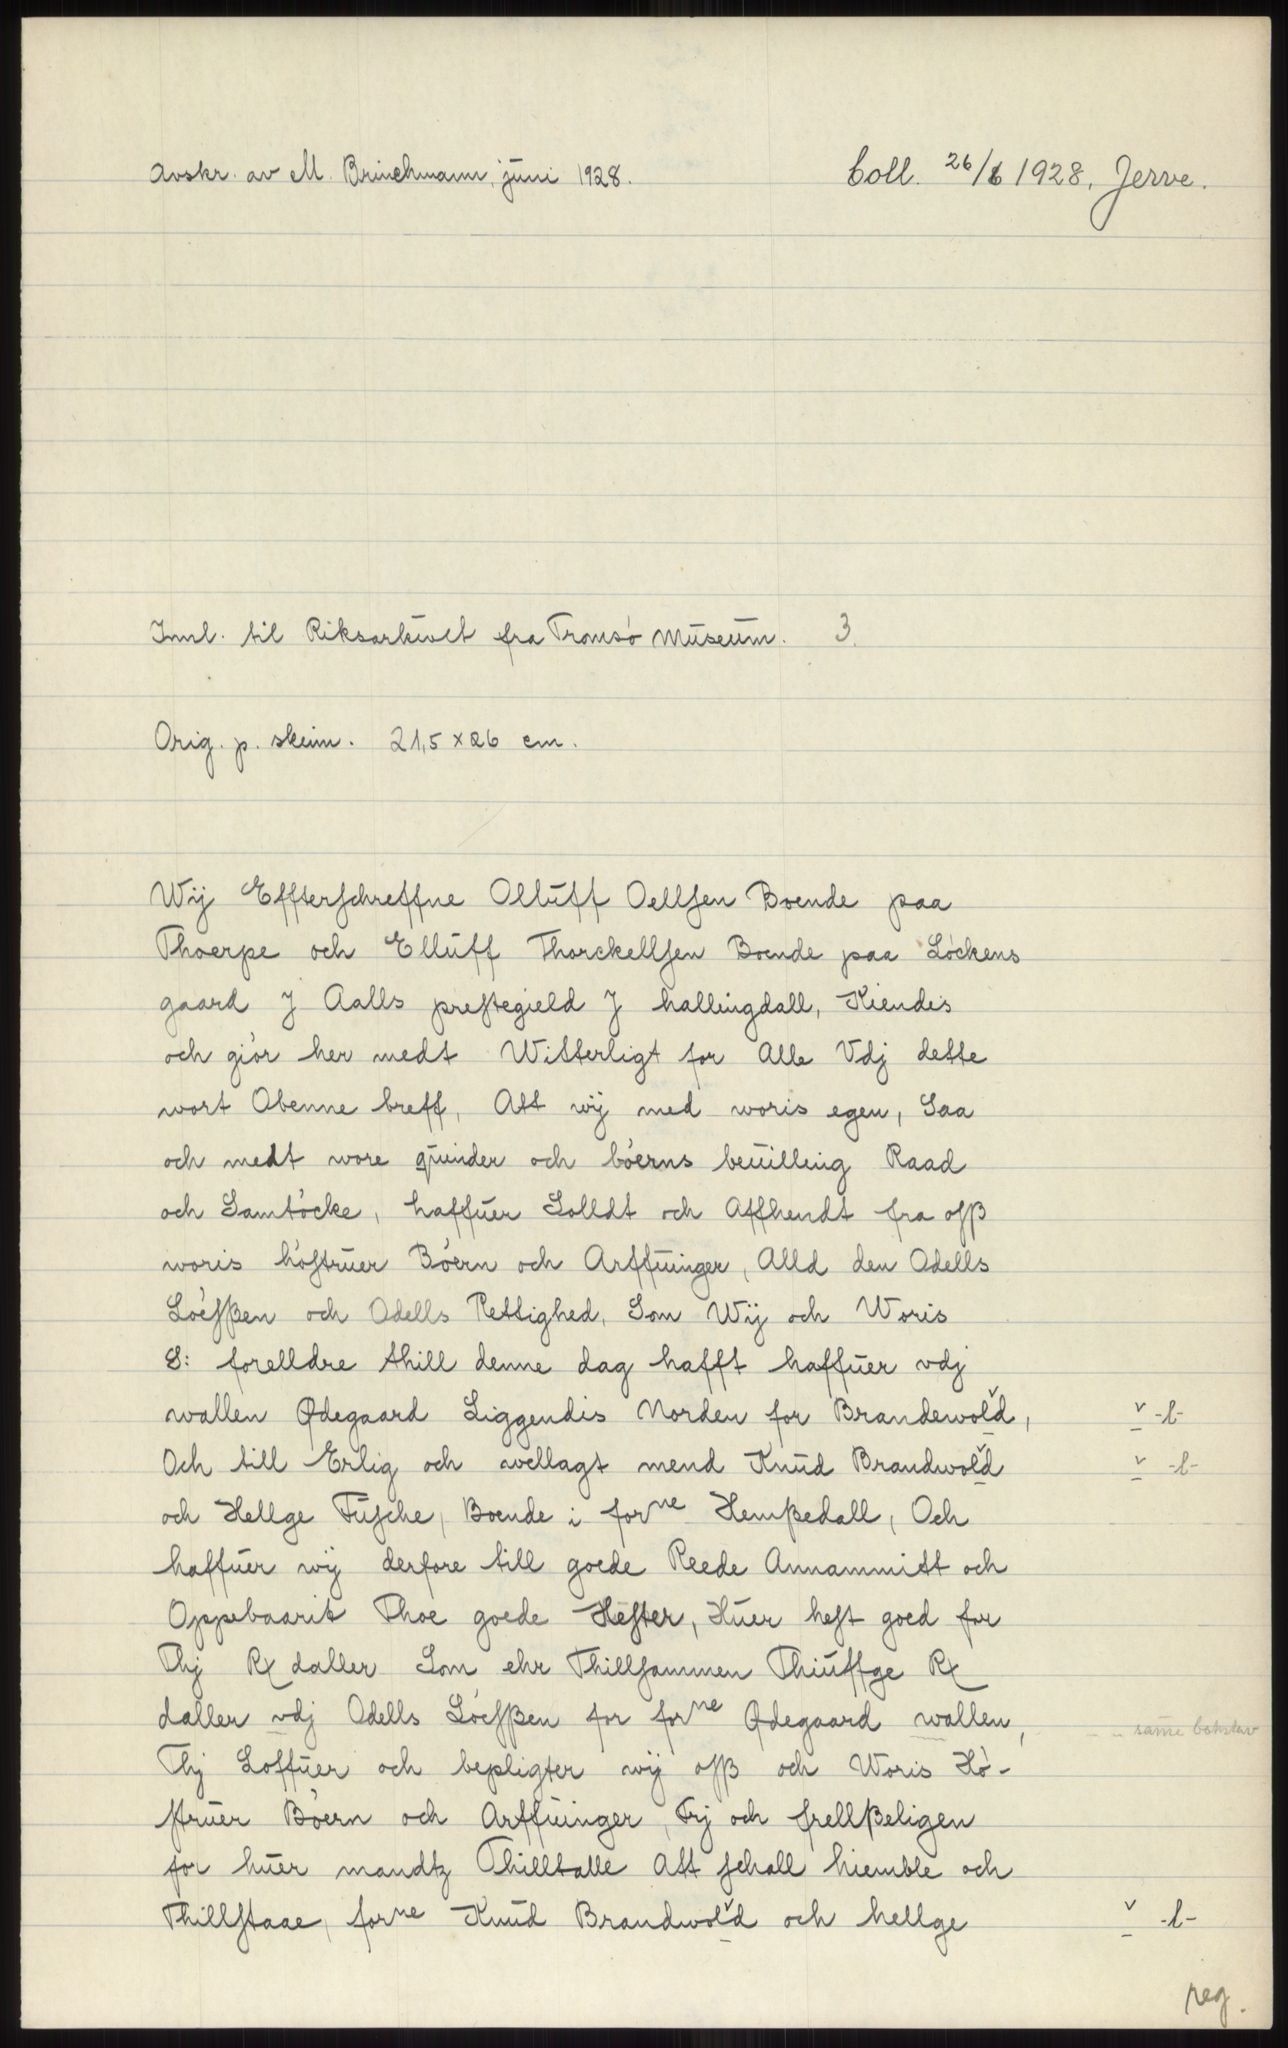 Avskr. av M. Brinchmann, juni 1928.
Coll. 26/6 1928, Jerve.
Innl. til Riksarkivet fra Tromsö Museum. 3.
Orig. p. skinn. 21,5 x 26 cm.
Wij Effterschreffne Olluff Oellsen Boende paa
Thoerpe och Elluff Thorckellsen Boende paa Löckens
gaard J Aalls prestegield J hallingdall, Kiendis
och giör her medt Witterligt for Alle Vdj dette
wort Obenne breff, Att wij med woris egen, Saa
och medt wore quinder och böerns beuilling Raad
och Samtöcke, haffuer Solldt och Affhendt fra oss
woris höstruer Böern och Arffuinger, Alld den Odells
Löeßen och Odells Rettighed, Som Wij och Woris
S: forelldre thill denne dag hafft haffuer vdj
wallen Ødegaard Liggendis Norden for Brandewold, v -l-
Och till Erlig och wellagt mend Knud Brandwold v -l-
och Hellge Fusche, Boende i forne Hemßedall, Och
haffuer wij derfore till goede Reede Annammitt och
Oppebaarit Thoe goede Hester, Huer hest goed for
Thj Rx daller Som ehr Thillsammen Thiuffge Rx
daller vdj Odells Löeßen for forne Ødegaard wallen, samme bokstav
Thj Loffuer och bepligter wij oss och Woris Hö-
struer Böern och Arffuinger, Frj och frellßeligen
for huer mandtz Thilltalle Att schall hiemble och
Thillstaae, forne Knud Brandwold och hellge v -l-
reg.